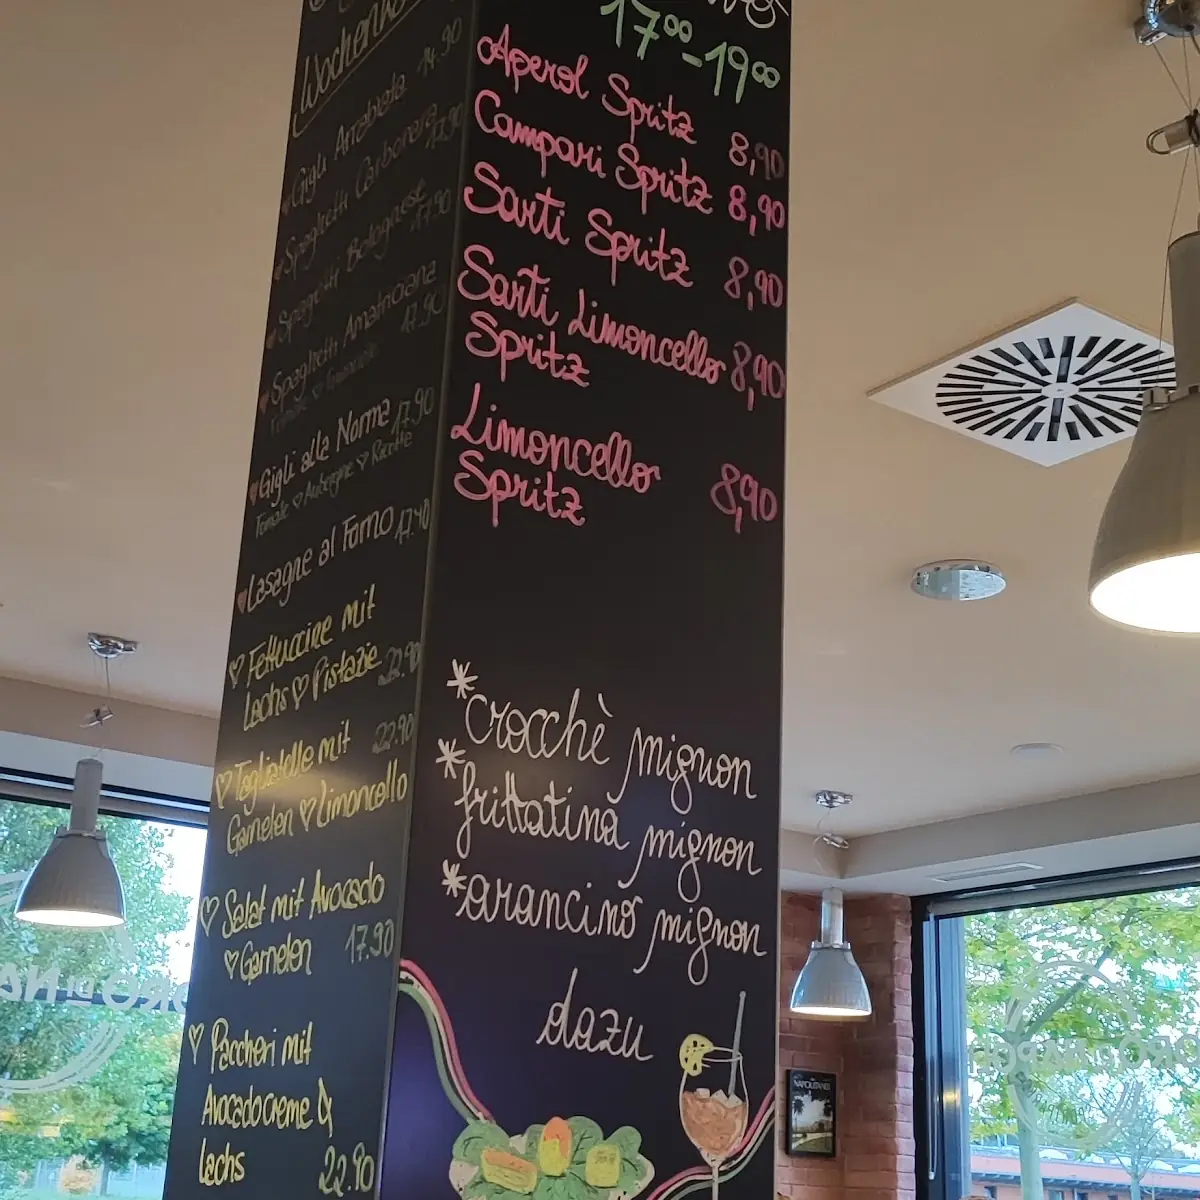 Gigli Arrabiata 14.90
Spaghetti Carbonara 17.90
Spaghetti Bolognese
17.90
Spaghetti Amatriciana
17.90
Gigli alla Norma 17.90
Tomate ♡ Aubergine ♡ Ricotta
Lasagne al Forno 17.40
♡ Fettuccine mit
Lachs ♡ Pistazie 22.90
♡ Tagliatelle mit 22.90
Garnelen ♡ Limoncello
♡ Salat mit Avocado
♡ Garnelen 17.90
♡ Paccheri mit
Avocadocreme &
Lachs 22.90
17⁰⁰-19⁰⁰
Aperol Spritz 8,90
Campari Spritz 8,90
Sarti Spritz 8,90
Sarti Limoncello 8,90
Spritz
Limoncello
Spritz 8,90
*crocchè mignon
*frittatina mignon
*arancino mignon
dazu